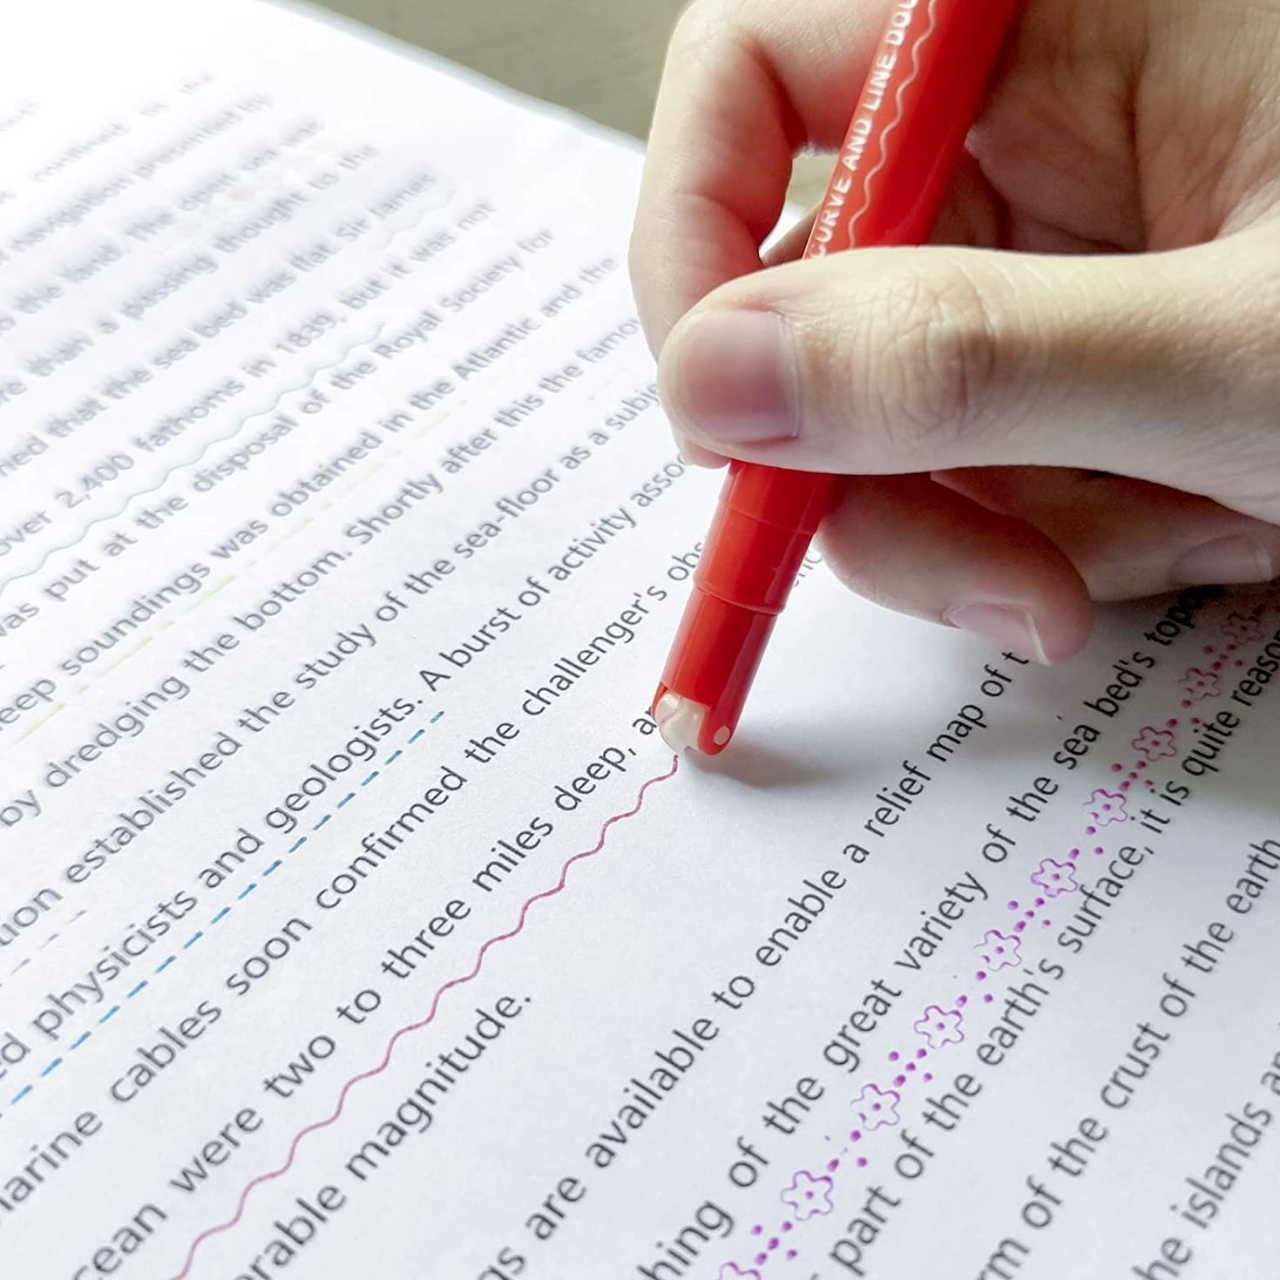 CURVE AND LINE DOU
confined to the
navigation prevented by
to the land. The open sea was
than a passing thought to the
that the sea bed was flat. Sir James
over 2,400 fathoms in 1839, but it was not
was put at the disposal of the Royal Society for
eep soundings was obtained in the Atlantic and the
by dredging the bottom. Shortly after this the famo
tion established the study of the sea-floor as a subje
ed physicists and geologists. A burst of activity assoc
arine cables soon confirmed the challenger's obs
cean were two to three miles deep, a
erable magnitude.
gs are available to enable a relief map of t
hing of the great variety of the sea bed's topo
part of the earth's surface, it is quite reason
rm of the crust of the earth
he islands